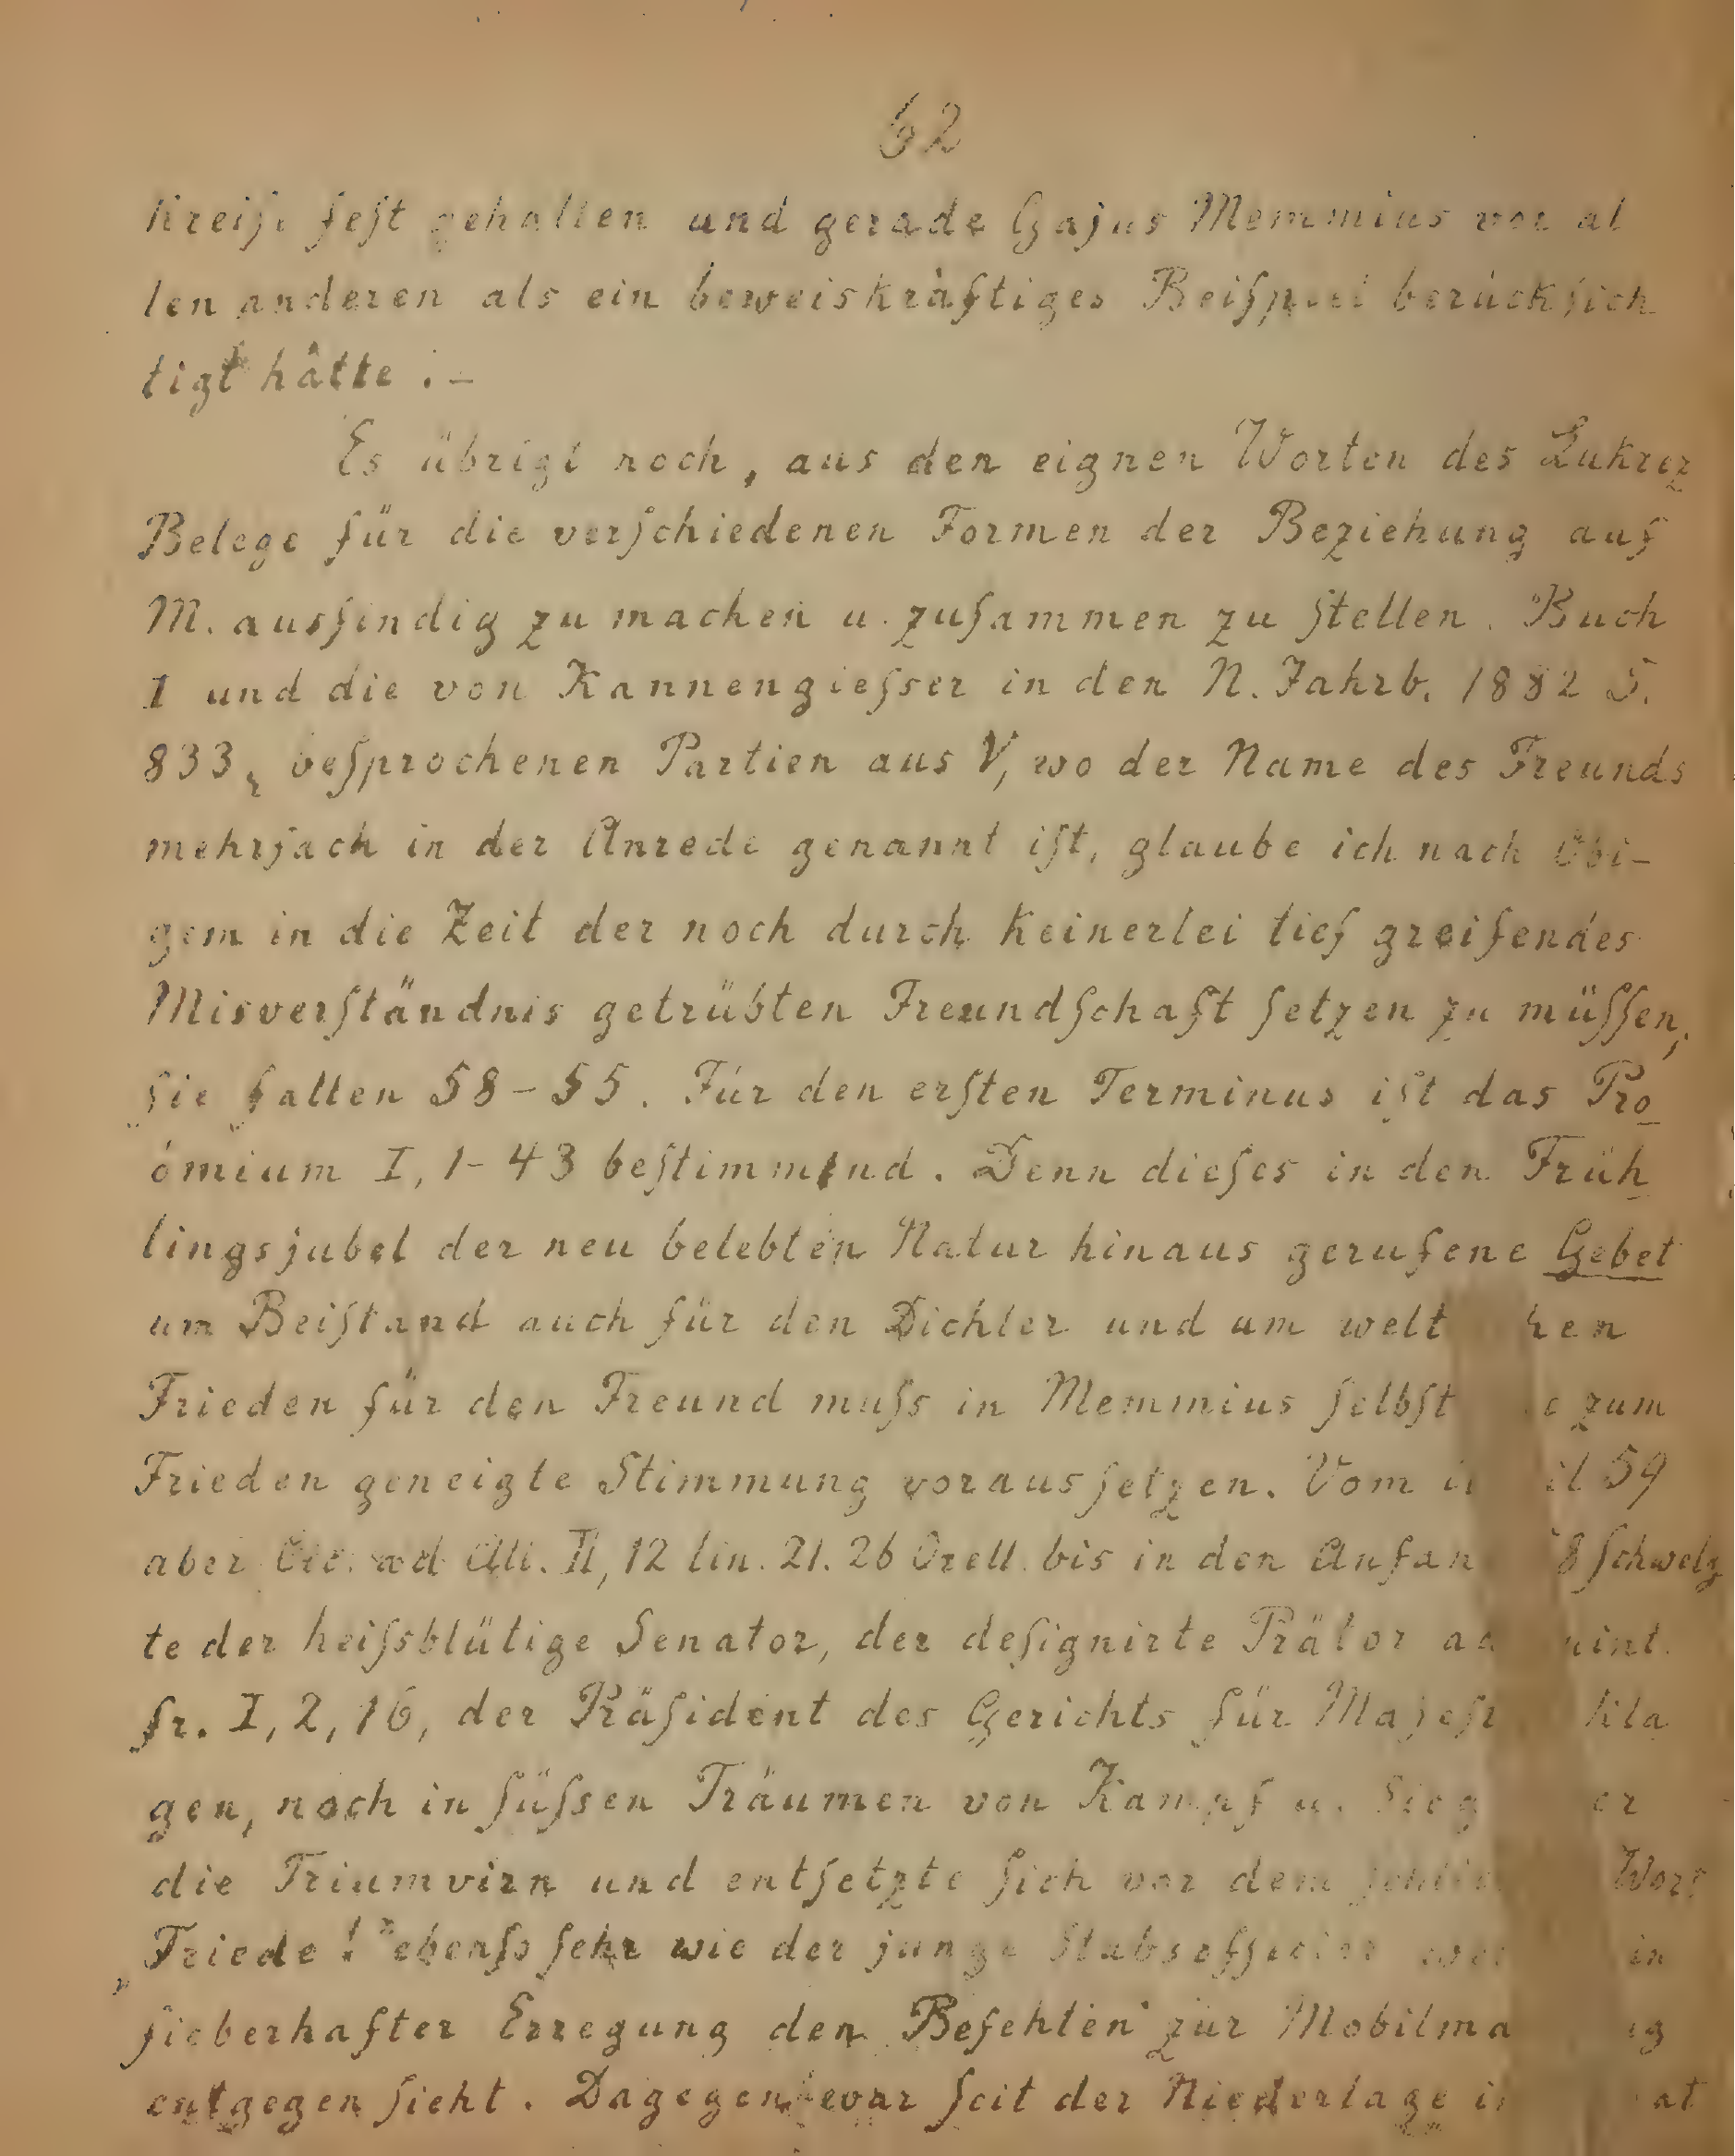 62
Kreiſe feſt gehalten und gerade Gajus Memmius vor al
len anderen als ein beweiskräftiges Beiſpiel berückſich
tigt hätte . –
Es übrigt noch, aus den eignen Worten des Lukrez
Belege für die verſchiedenen Formen der Beziehung auf
M. ausfindig zu machen u. zuſammen zu ſtellen. Buch
I und die von Kannengieſser in den N. Jahrb. 1882 S.
833, beſprochenen Partien aus V, wo der Name des Freunds
mehrfach in der Anrede genannt iſt, glaube ich nach Obi-
gem in die Zeit der noch durch keinerlei tief greifendes
Misverſtändnis getrübten Freundſchaft ſetzen zu müſſen,
ſie fallen 58-55. Für den erſten Terminus iſt das Pro
ömium I, 1-43 beſtimmend. Denn dieſes in den Früh
lingsjubel der neu belebten Natur hinaus gerufene Gebet
um Beiſtand auch für den Dichter und um
Frieden für den Freund muſs in Memmius ſelbſt zum
Frieden geneigte Stimmung voraus ſetzen. Vom 59
aber Cic. ad Att. II, 12 lin. 21. 26 Orell. bis in den ſchwelg
te der heiſsblütige Senator, der deſignirte Prätor
fr. I, 2, 16, der Präſident des Gerichts für
gen, noch in ſüſsen Träumen von Kampf u.
die Triumvirn und entſetzte ſich vor dem Wort
„Friede!" ebenſo ſehr wie der junge in
fieberhafter Erregung den Befehlen zur
entgegen ſieht. Dagegen war ſeit der Niederlage